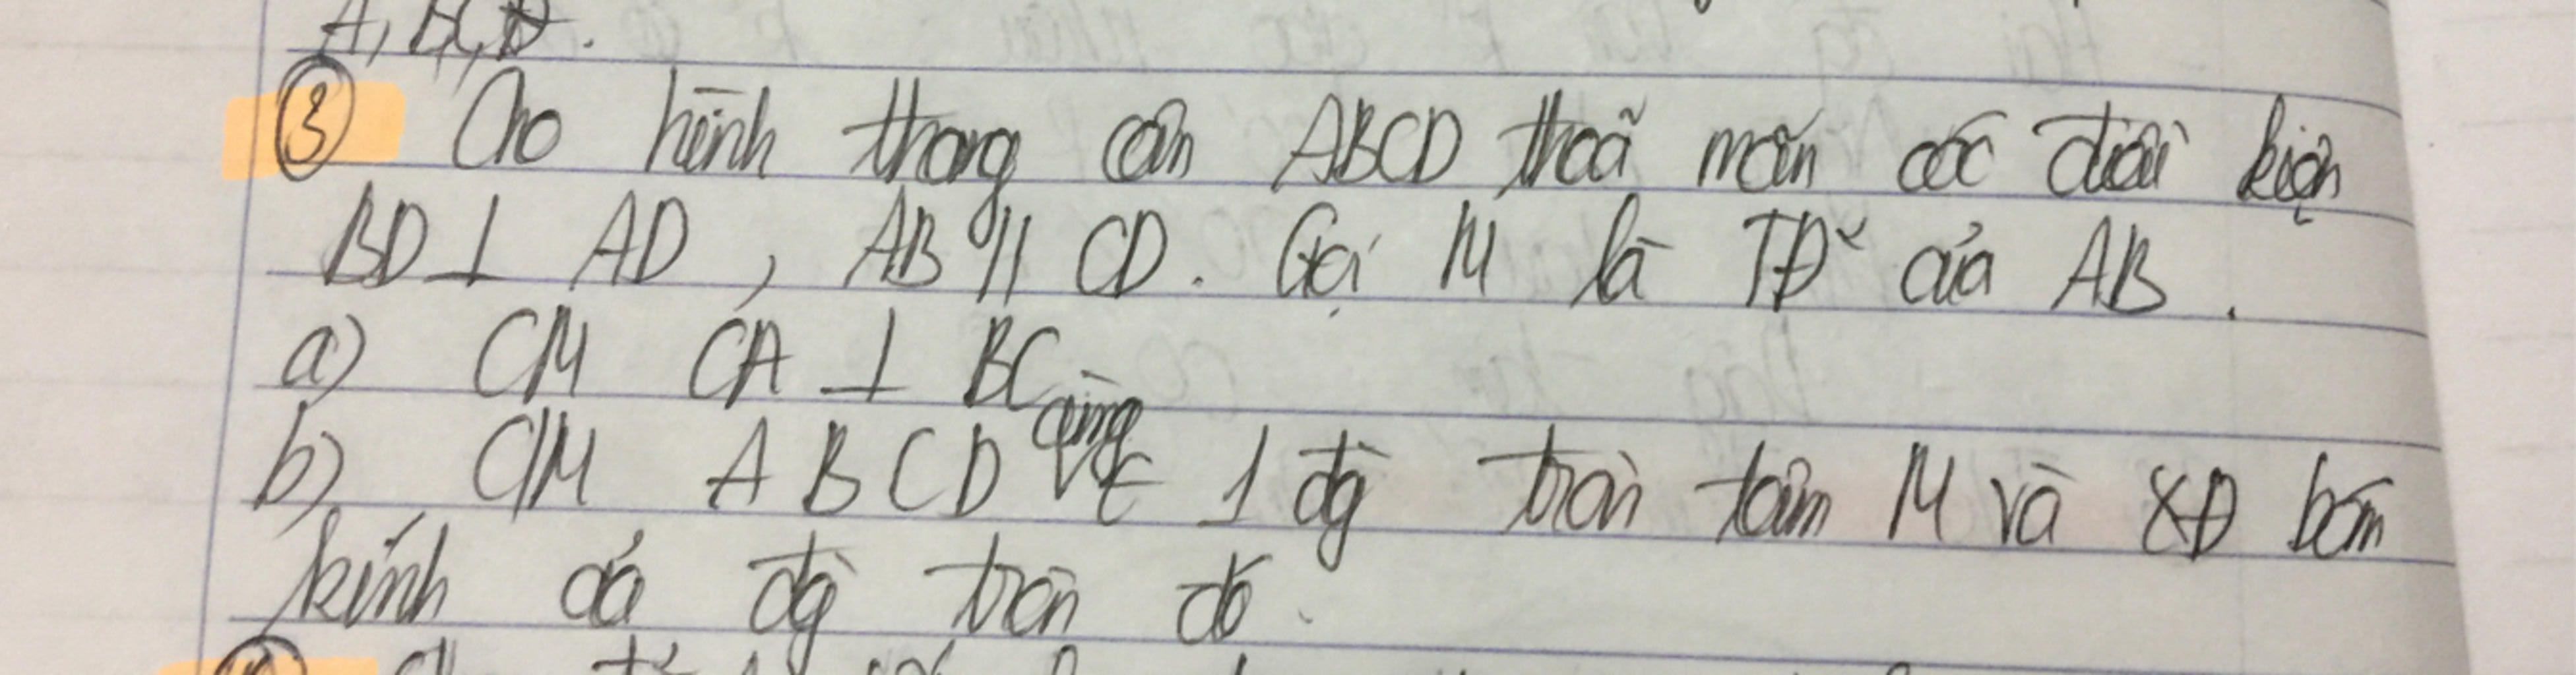 A, B, C, D.
③ Cho hình thang cân ABCD thoã mãn các điều kiện
BD ⊥ AD, AB // CD. Gọi M là TĐ² của AB.
a) CM CA ⊥ BC
b) CM A B C D cùng ∈ 1 đg̀ tròn tâm M và XĐ bán
kính của đg̀ tròn đó.